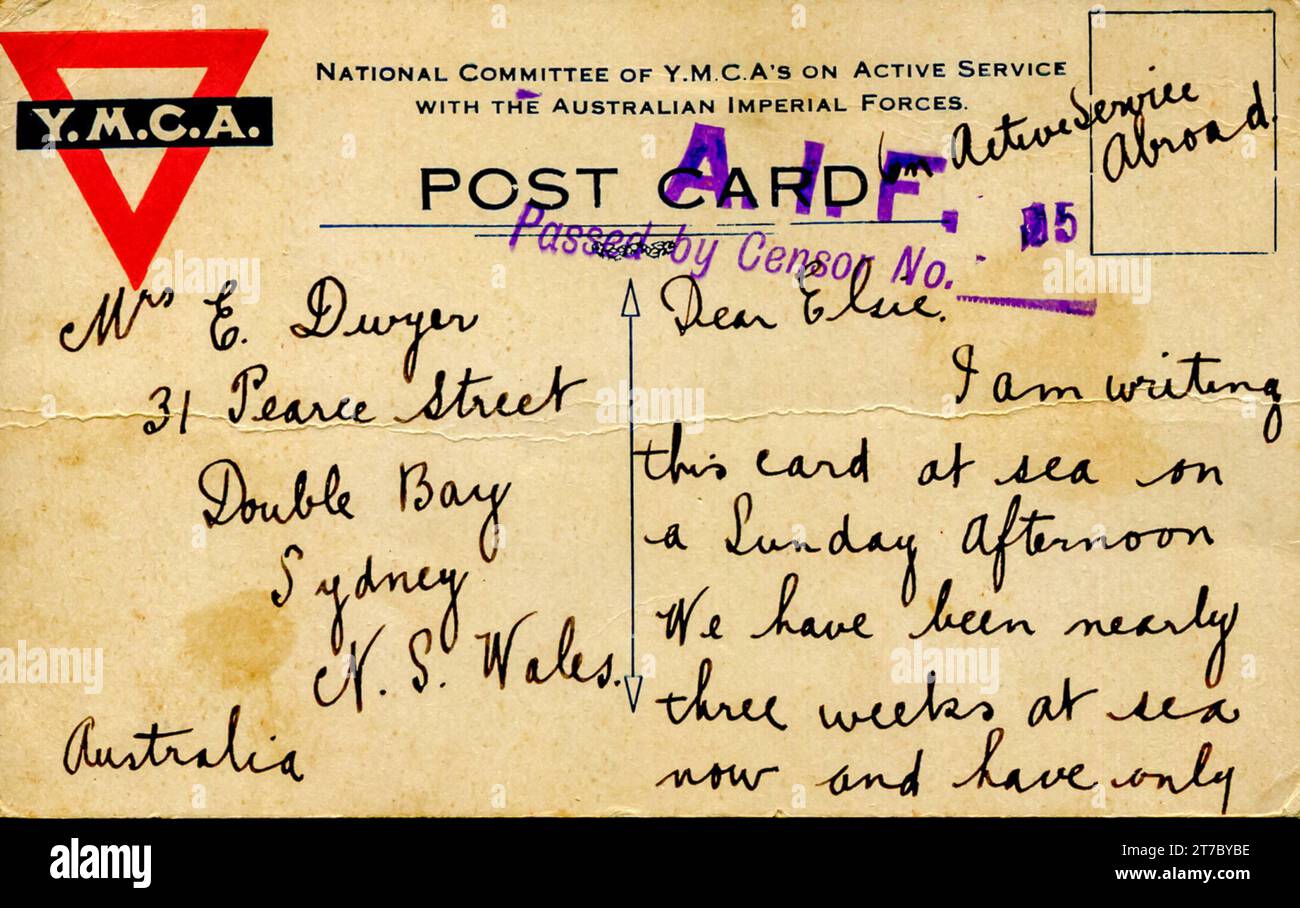 Y.M.C.A.
NATIONAL COMMITTEE OF Y.M.C.A'S ON ACTIVE SERVICE
WITH THE AUSTRALIAN IMPERIAL FORCES.
on Active Service
Abroad.
POST CARD
A.I.F.
Passed by Censor No.
Mrs E. Dwyer
31 Pearce Street
Double Bay
Sydney
N. S. Wales.
Australia
Dear Elsie.
I am writing
this card at sea on
a Sunday Afternoon
We have been nearly
three weeks at sea
now and have only
alamy
Image ID: 2T7BYBE
www.alamy.com